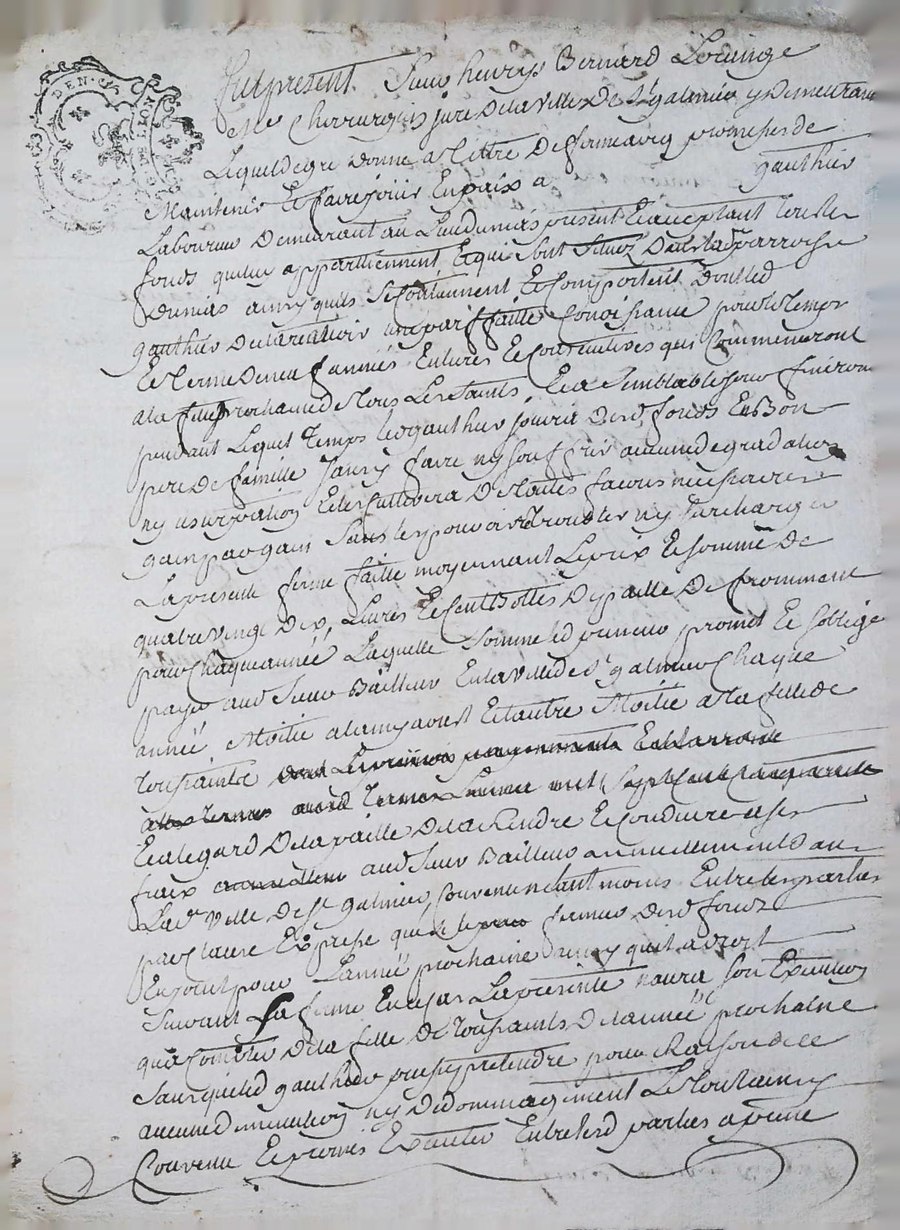 DEN
LYON
Fut present Sieur henry Bernard
Me Chirurgien juré De la ville De St galmier y Demeurant
Lequel de gré Donne a tittre De ferme avec promesses de
Maintenir Et faire jouir En paix a gauthier
Laboureur Demeurant au Lieu du mas present Et acceptant Tous les
fonds qui luy appartiennent Et qui sont situez Dans la parroisse
Du mas ainsy quils Se Contiennent Et Comportent Desquels
gauthier Declare avoir une parffaitte Conoissance pour le temps
Et Terme De neuf années Entieres Et Consecutives qui Commenceront
a la feste prochaine de Tous Les saints Et a Semblable jour finiront
pendant Lequel Temps led gauthier jouira desd fonds En Bon
pere De famille Sans y faire ny souffrir aucune degradation
ny usurpation Et les Cultivera De toutes facons necessaires
gain par gain Sans les pouvoir ny surcharger
La presente ferme faitte moyennant Le prix Et somme De
quatre vingt Dix Livres Et Cent Bottes De paille De fromment
pour Chaque année, Laquelle Somme led preneur promet Et soblige
payer aud Sieur Bailleur En la ville de St galmier Chaque
année Moitié a la my aoust Et lautre Moitié a la feste de
Toussaints
Et a legard De la paille De la Rendre Et Conduire a ses
fraix aud Sieur Bailleur annuellement Dans
La de ville De St galmier, Convenu neantmoins Entre les parties
par Clause Expresse que le fermier desd fonds
En jouira pour Lannée prochaine ainsy quil a Droit
Suivant Sa ferme Et que La presente naura son Execution
qua Compter De la feste De Toussaints De lannée prochaine
Sans que led gauthier puisse pretendre pour Raison de ce
aucune diminution ny Dedommagement Le tout ainsy
Convenu Et promis Executer Entre lesd parties a peine